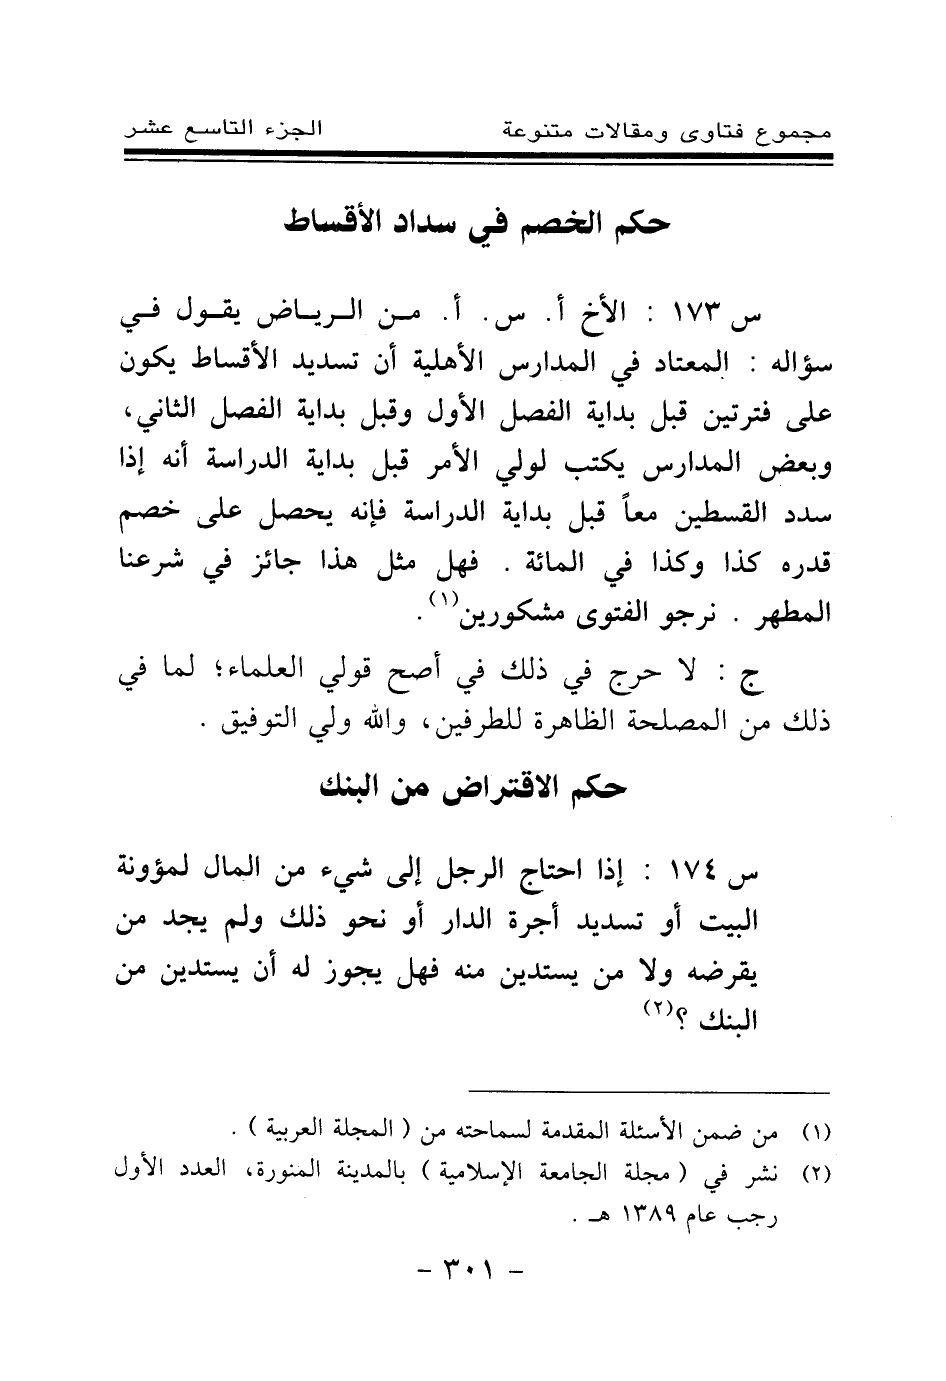 مجموع فتاوى ومقالات متنوعة الجزء التاسع عشر
حكم الخصم في سداد الأقساط
س ١٧٣ : الأخ أ. س. أ. من الرياض يقول في
سؤاله : المعتاد في المدارس الأهلية أن تسديد الأقساط يكون
على فترتين قبل بداية الفصل الأول وقبل بداية الفصل الثاني،
وبعض المدارس يكتب لولي الأمر قبل بداية الدراسة أنه إذا
سدد القسطين معاً قبل بداية الدراسة فإنه يحصل على خصم
قدره كذا وكذا في المائة . فهل مثل هذا جائز في شرعنا
المطهر . نرجو الفتوى مشكورين(١).
ج : لا حرج في ذلك في أصح قولي العلماء؛ لما في
ذلك من المصلحة الظاهرة للطرفين، والله ولي التوفيق .
حكم الاقتراض من البنك
س ١٧٤ : إذا احتاج الرجل إلى شيء من المال لمؤونة
البيت أو تسديد أجرة الدار أو نحو ذلك ولم يجد من
يقرضه ولا من يستدين منه فهل يجوز له أن يستدين من
البنك ؟(٢)
(١) من ضمن الأسئلة المقدمة لسماحته من ( المجلة العربية ) .
(٢) نشر في ( مجلة الجامعة الإسلامية ) بالمدينة المنورة، العدد الأول
رجب عام ١٣٨٩ هـ .
- ٣٠١ -